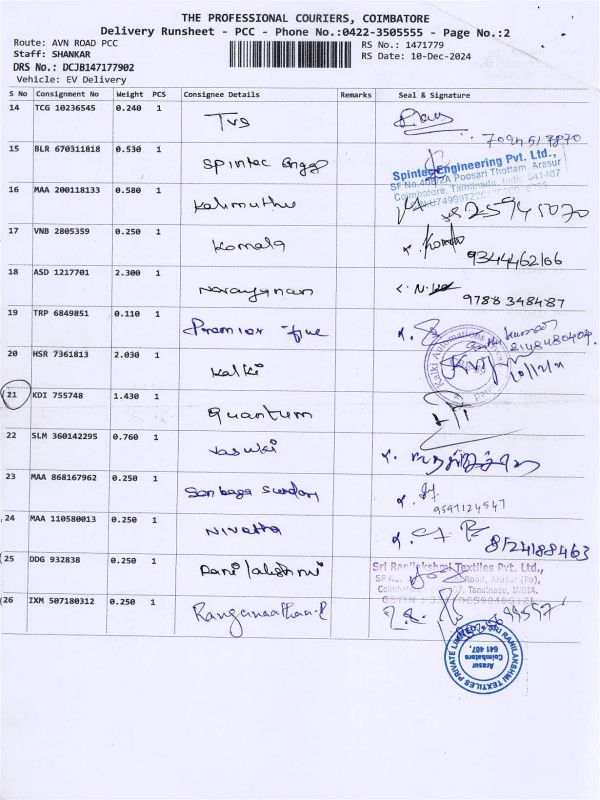 THE PROFESSIONAL COURIERS, COIMBATORE
Delivery Runsheet - PCC - Phone No.:0422-3505555 - Page No.:2
Route: AVN ROAD PCC
RS No.: 1471779
Staff: SHANKAR
RS Date: 10-Dec-2024
DRS No.: DCJB147177902
Vehicle: EV Delivery
S No Consignment No Weight PCS Consignee Details Remarks Seal & Signature
14 TCG 10236545 0.240 1
TVS
7094517870
15 BLR 670311818 0.530 1
Spintec Engg
Spintec Engineering Pvt. Ltd.,
Poosari Thottam, Arasur
Coimbatore, Tamilnadu, India 641407
16 MAA 200118133 0.580 1
Kalimuthu
17 VNB 2805359 0.250 1
Komala
9344462166
18 ASD 1217701 2.300 1
Narayanan
9788348487
19 TRP 6849851 0.110 1
Premier fine
8148480404
20 HSR 7361813 2.030 1
Kalki
Kalki Automations
21 KDI 755748 1.430 1
Quantum
22 SLM 360142295 0.760 1
Vasuki
23 MAA 868167962 0.250 1
Senbaga Sundary
9597124547
24 MAA 110580013 0.250 1
Nivetha
8124188463
25 DDG 932838 0.250 1
Rani lakshmi
Sri Ranilakshmi Textiles Pvt. Ltd.,
Road, Arasur (Po),
Tamilnadu, INDIA.
26 IXM 507180312 0.250 1
Ranganaathan.R
SRI RANILAKSHMI TEXTILES PRIVATE LIMITED
Arasur
Coimbatore
641 407.